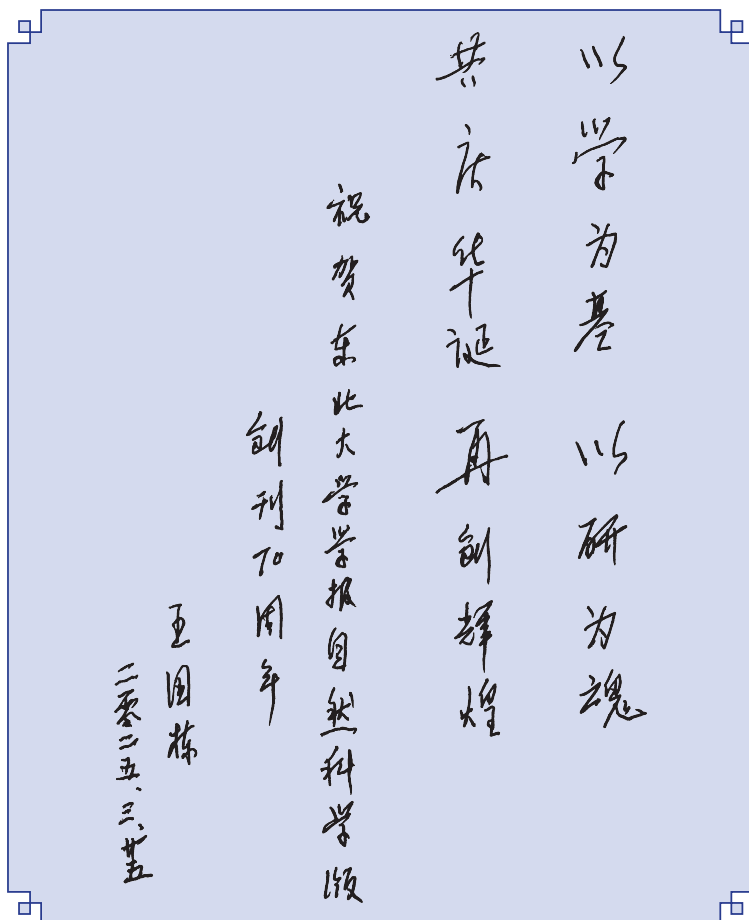 以学为基 以研为魂
共庆华诞 再创辉煌
祝贺东北大学学报自然科学版
创刊70周年
王国栋
二零二五、三、廿五